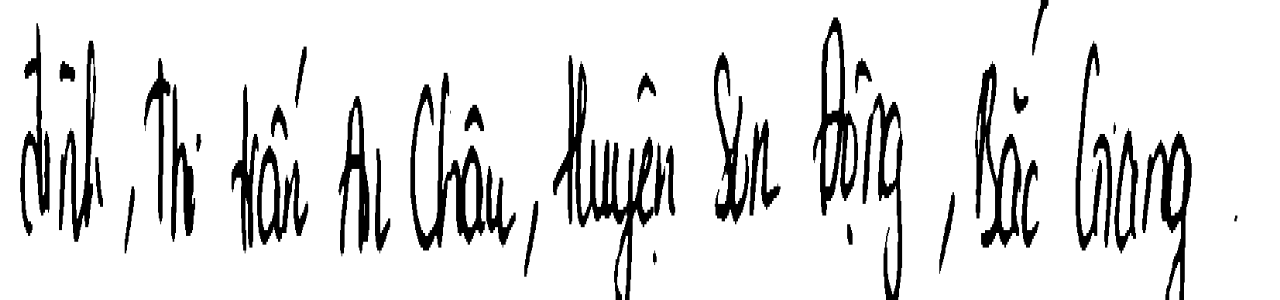 đình, Thị trấn An Châu, Huyện Sơn Động, Bắc Giang.